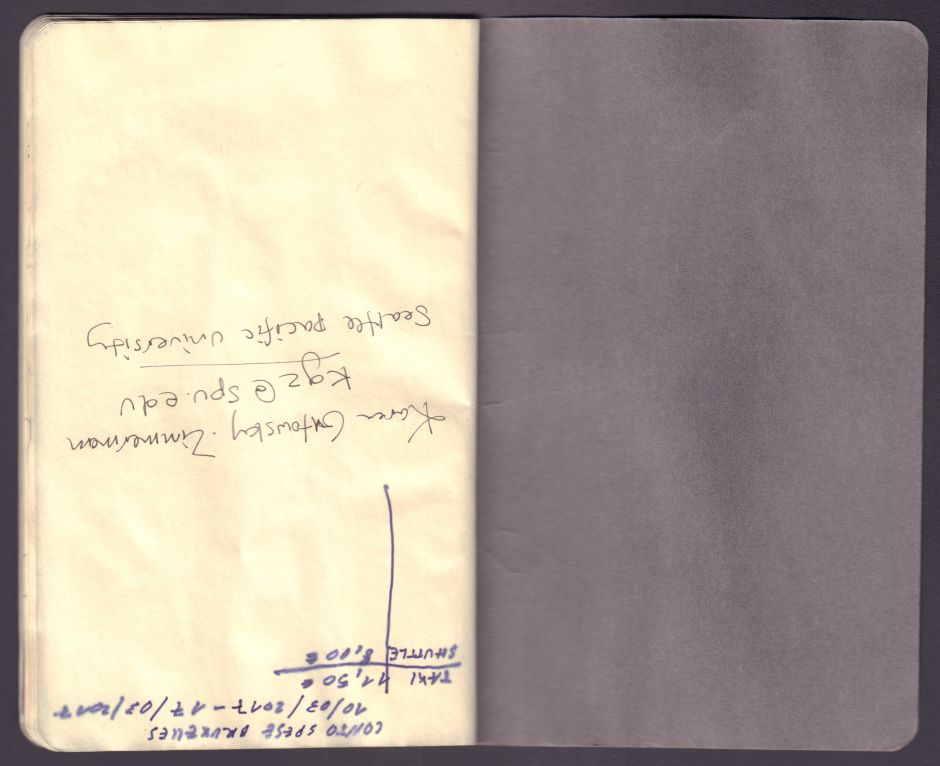 CONTO SPESE BRUXELLES
10/03/2017 - 17/03/2017
TAXI 11,50 €
SHUTTLE 8,00 €
Karen Gutowsky-Zimmerman
kgz@spu.edu
Seattle pacific University